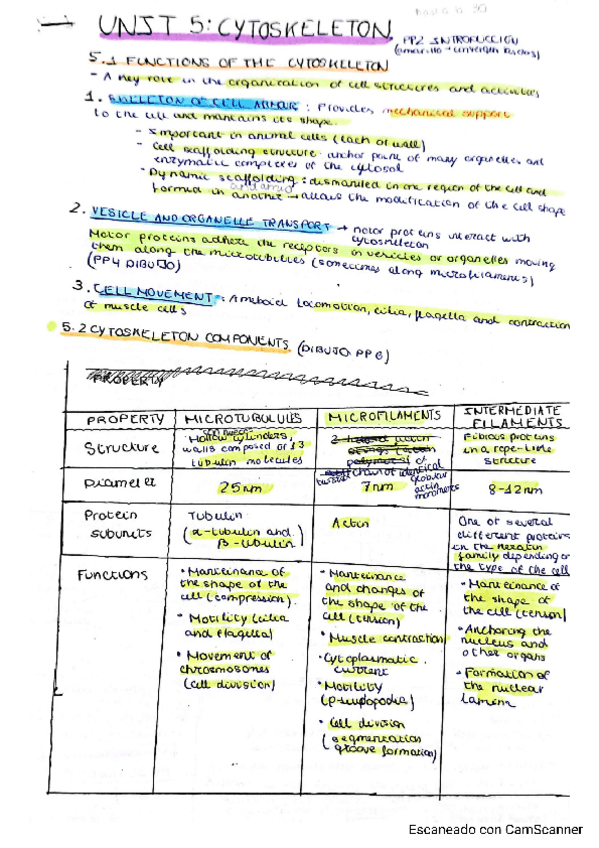 Hasta p. 30
UNIT 5: CYTOSKELETON
PP2 INTRODUCCIÓN
(amarillo →
5.1 FUNCTIONS OF THE CYTOSKELETON
- A key role in the organization of cell structures and activities
1. SKELETON OF CELL ARMOUR: Provides mechanical support
to the cell and maintains its shape.
- Important in animal cells (lack of wall)
- Cell scaffolding structure: anchor point of many organelles and
enzymatic complexes of the cytosol
- Dynamic scaffolding: dismantled in one region of the cell and
formed in another → allows the modification of the cell shape
2. VESICLE AND ORGANELLE TRANSPORT → motor proteins interact with
cytoskeleton
Motor proteins adhere the receptors in vesicles or organelles moving
them along the microtubules (sometimes along microfilaments)
(PP4 DIBUJO)
3. CELL MOVEMENT: Ameboid locomotion, cilia, flagella and contraction
of muscle cells
5.2 CYTOSKELETON COMPONENTS (DIBUJO PP6)
PROPERTY
PROPERTY MICROTUBULUES MICROFILAMENTS INTERMEDIATE FILAMENTS
Structure
Hollow cylinders,
walls composed of 13
tubulin molecules
chain of identical
globular
actin
monomers
Fibrous proteins
in a rope-like
structure
Diameter 25nm 7nm 8-12nm
Protein
subunits
Tubulin
(α-tubulin and
β-tubulin)
Actin
One of several
different proteins
in the keratin
family depending on
the type of the cell
Functions
• Manteinance of
the shape of the
cell (compression).
• Motility (cilia
and flagella)
• Movement of
chromosomes
(cell division)
• Manteinance
and changes of
the shape of the
cell (tension)
• Muscle contraction
• Cytoplasmatic
current
• Motility
(pseudopodia)
• Cell division
(segmentation
groove formation)
• Manteinance of
the shape of
the cell (tension)
• Anchoring the
nucleus and
other organs
• Formation of
the nuclear
lamina
Escaneado con CamScanner